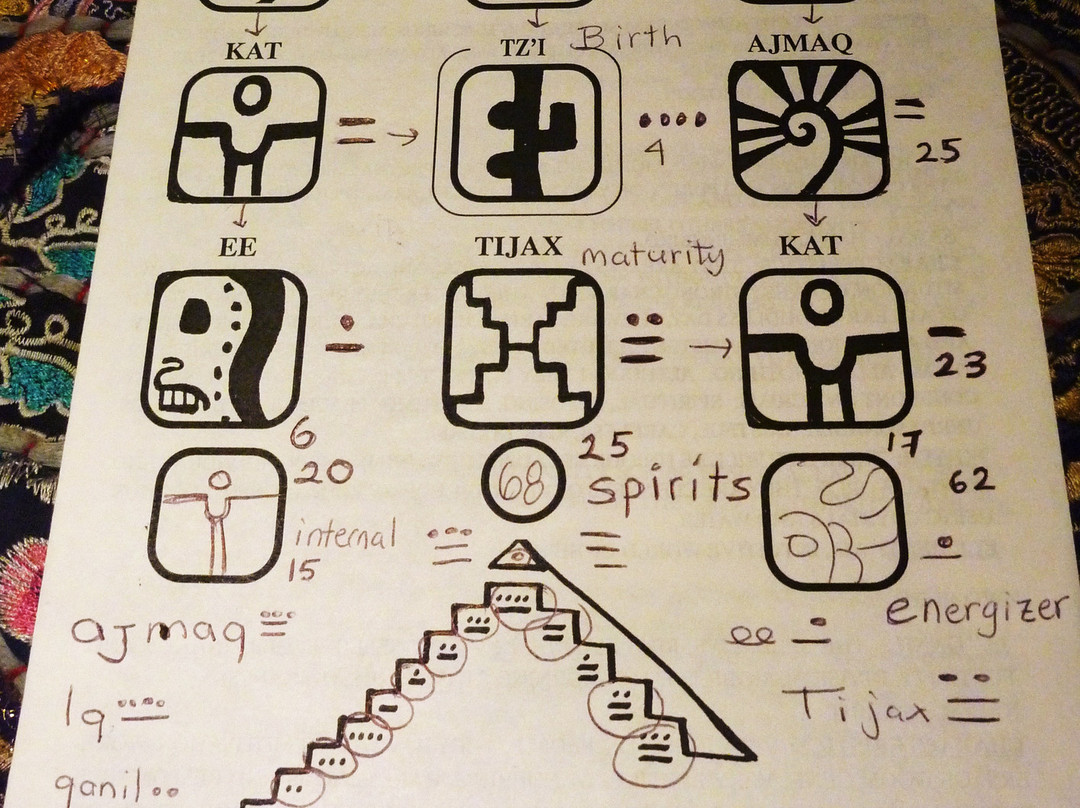 KAT TZ'I Birth AJMAQ
4
25
EE TIJAX maturity KAT
23
6 25 17
20 68 spirits 62
internal
15
energizer
ajmaq ee
Iq Tijax
qanil